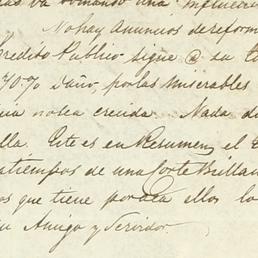 va tomando una influencia
No hay Anuncios de reform
Credito Publico sigue @ su t
70% Daño, por las miserables
no sea crecida. Nada d
lla. Este es en Resumen el E
s tiempos de una Corte Brillan
os que tiene por aca ellos lo
Amigo y Servidor